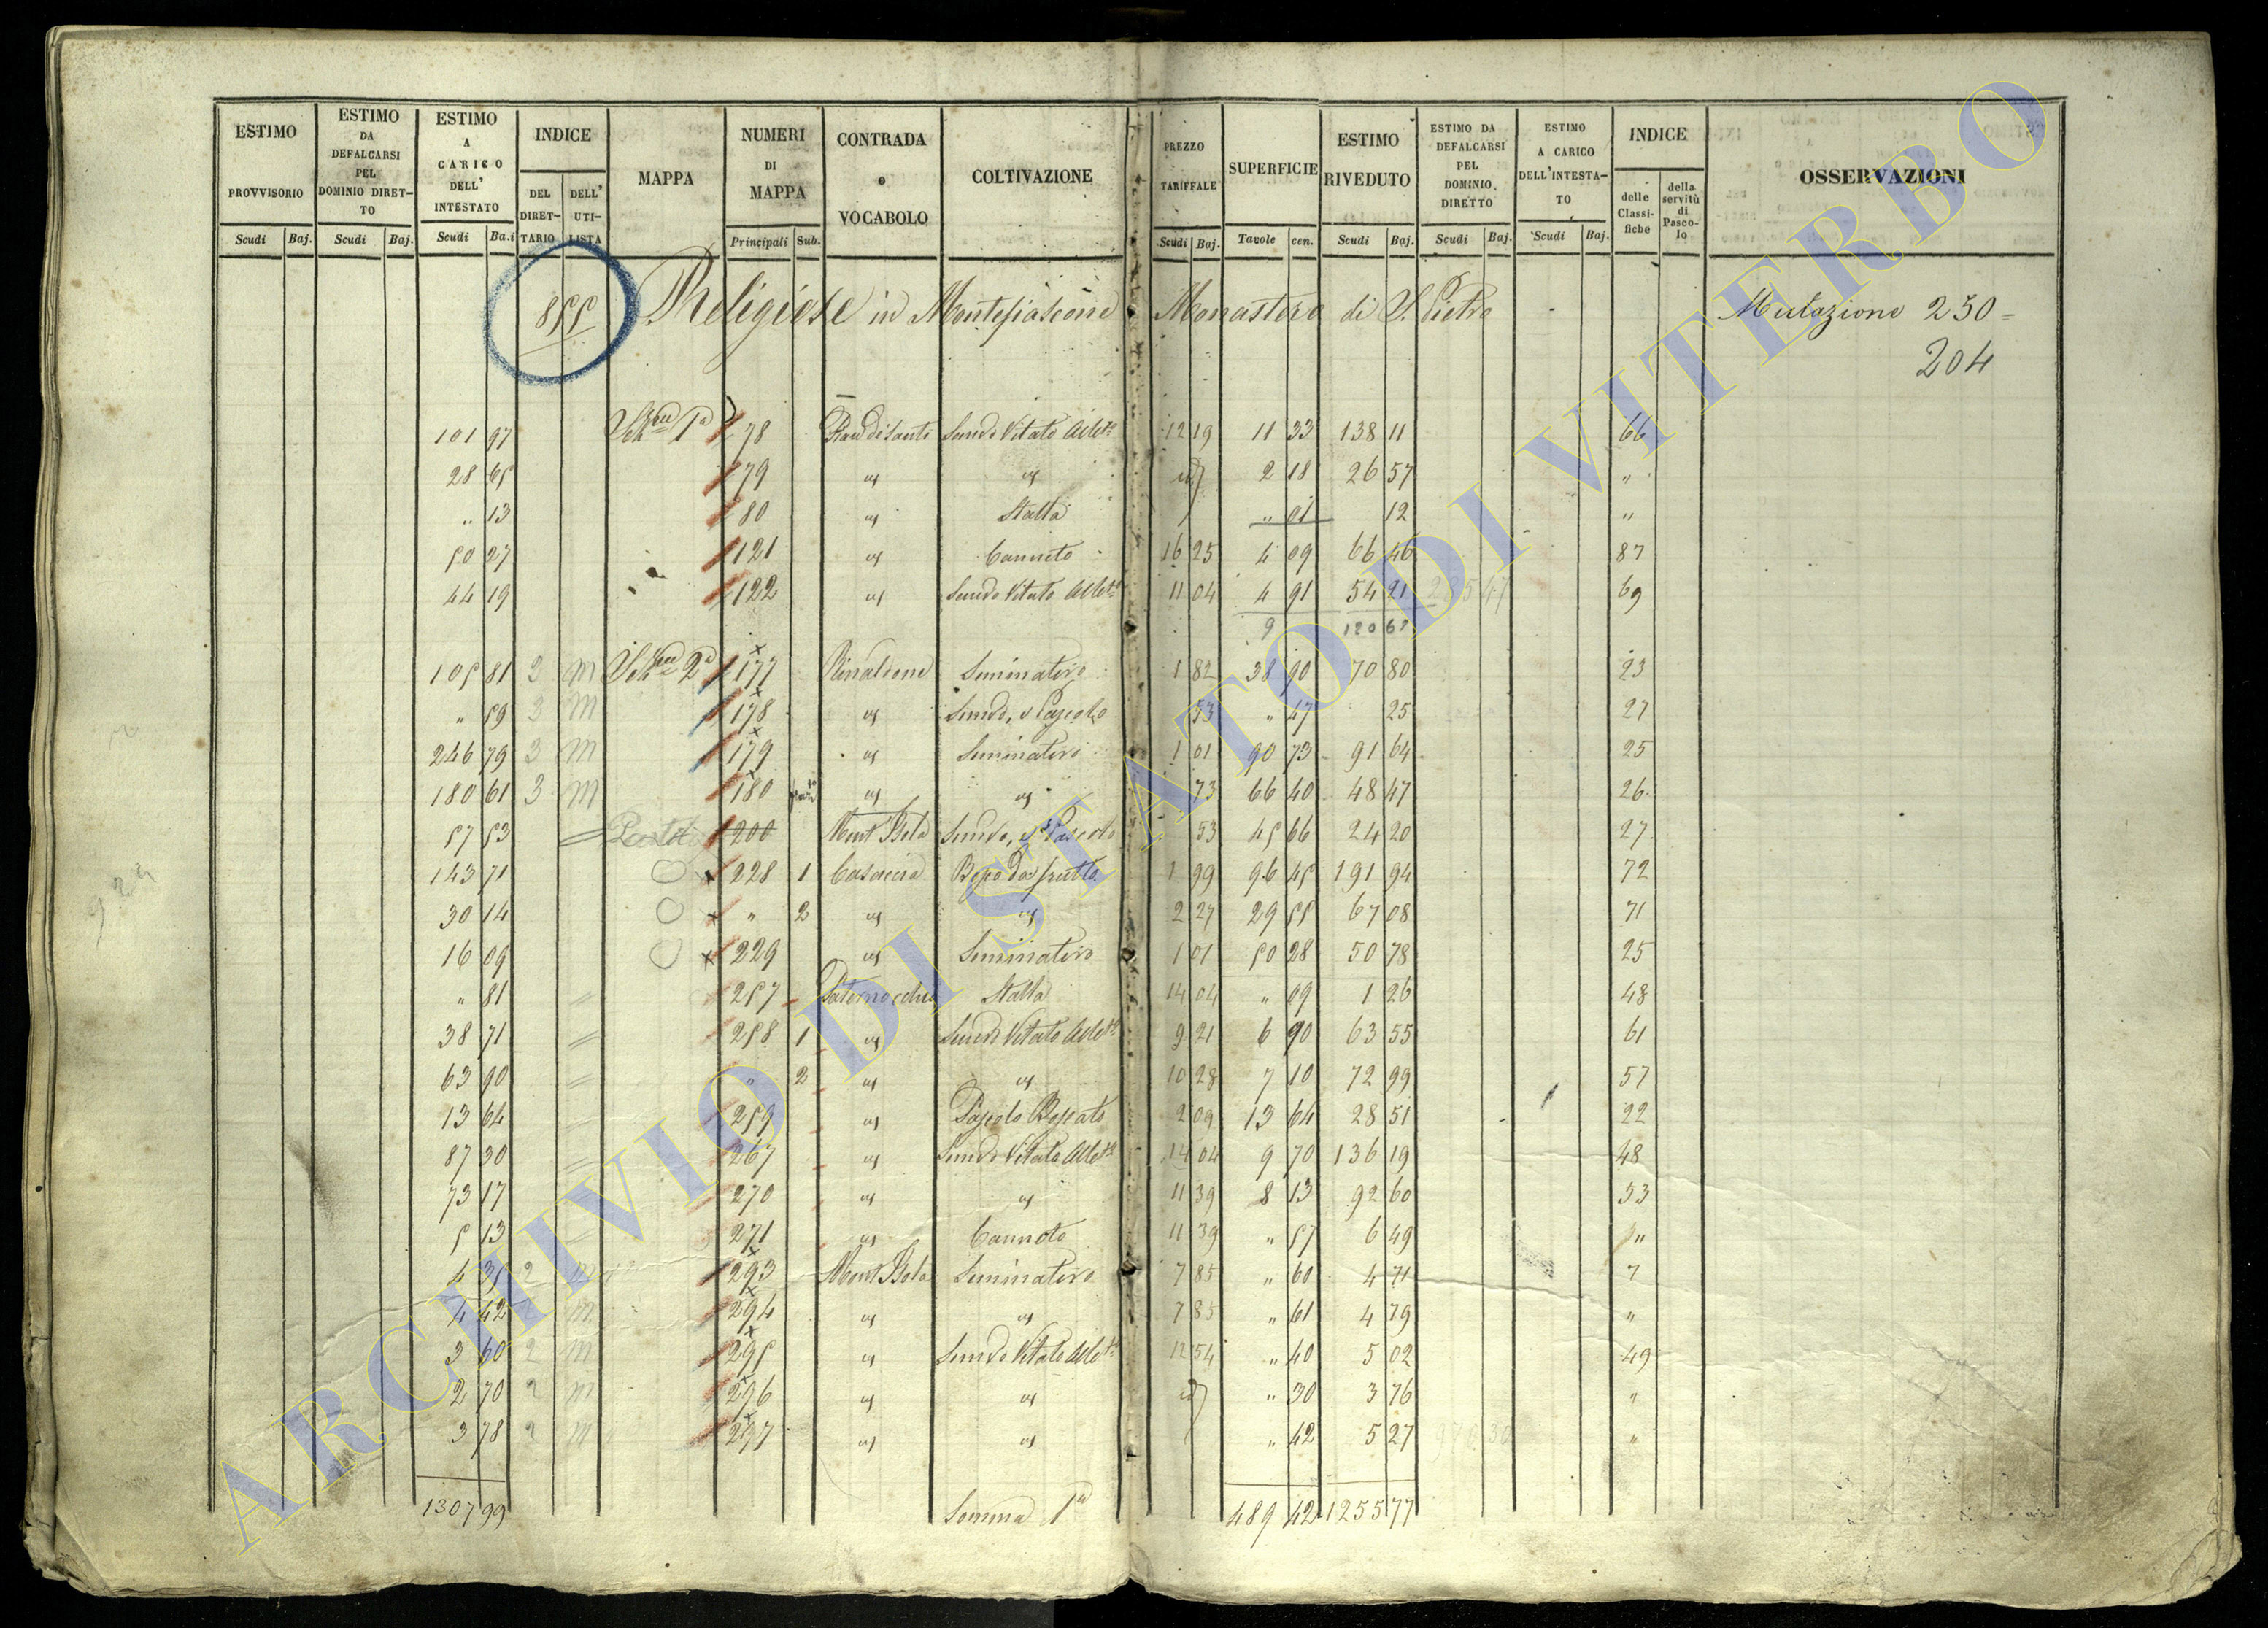 ESTIMO PROVVISORIO | ESTIMO DA DEFALCARSI PEL DOMINIO DIRETTO | ESTIMO A CARICO DELL' INTESTATO | INDICE | MAPPA | NUMERI DI MAPPA | CONTRADA o VOCABOLO | COLTIVAZIONE | PREZZO TARIFFALE | SUPERFICIE | ESTIMO RIVEDUTO | ESTIMO DA DEFALCARSI PEL DOMINIO DIRETTO | ESTIMO A CARICO DELL'INTESTATO | INDICE | OSSERVAZIONI
DEL DIRETTARIO | DELL' UTILISTA | delle Classifiche | della servitù di Pascolo
Scudi | Baj. | Scudi | Baj. | Scudi | Ba.i | Principali | Sub. | Scudi | Baj. | Tavole | cen. | Scudi | Baj. | Scudi | Baj. | Scudi | Baj.
855 Religiose in Montefiascone Monastero di S. Pietro Mutazione 230 =
204
101 97 | 1a | 78 | Semvo Vitato Albto | 12 19 | 11 33 | 138 11 | 66
28 65 | 79 | " | " | 2 18 | 26 57 | "
" 13 | 80 | " | Stalla | " 01 | 12 | "
50 27 | 121 | " | Canneto | 16 25 | 4 09 | 66 46 | 87
44 19 | 122 | " | Semvo Vitato Albto | 11 04 | 4 91 | 54 21 | 285 47 | 69
9 | 120 67
105 81 | 3 | m | 2a | 177 | Rinaldone | Seminativo | 1 82 | 38 90 | 70 80 | 23
" 59 | 3 | m | 178 | " | Semvo, e Pascolo | 53 | " 47 | 25 | 27
246 79 | 3 | m | 179 | " | Seminativo | 1 01 | 90 73 | 91 64 | 25
180 61 | 3 | m | 180 | " | " | 73 | 66 40 | 48 47 | 26
57 53 | 200 | Mont'Bela | Semvo, e Pascolo | 53 | 45 66 | 24 20 | 27
143 71 | 228 | 1 | Casaccia | Bosco da frutto | 1 99 | 96 45 | 191 94 | 72
30 14 | " | 2 | " | " | 2 27 | 29 55 | 67 08 | 71
16 09 | 229 | " | Seminativo | 1 01 | 50 28 | 50 78 | 25
" 81 | 257 | Paternocchio | Stalla | 14 04 | " 09 | 1 26 | 48
38 71 | 258 | 1 | " | Semvo Vitato Albto | 9 21 | 6 90 | 63 55 | 61
63 90 | " | 2 | " | " | 10 28 | 7 10 | 72 99 | 57
13 64 | 259 | " | Pascolo Boscato | 2 09 | 13 64 | 28 51 | 22
87 30 | 267 | " | Semvo Vitato Albto | 14 04 | 9 70 | 136 19 | 48
73 17 | 270 | " | " | 11 39 | 8 13 | 92 60 | 53
5 13 | 271 | " | Canneto | 11 39 | " 57 | 6 49 | "
4 35 | 2 | m | 293 | Mont'Bela | Seminativo | 7 85 | " 60 | 4 71 | 7
4 42 | m | 294 | " | " | 7 85 | " 61 | 4 79 | "
3 60 | 2 | m | 295 | " | Semvo Vitato Albto | 12 54 | " 40 | 5 02 | 49
2 70 | 2 | m | 296 | " | " | " 30 | 3 76 | "
3 78 | 2 | m | 297 | " | " | " 42 | 5 27 | "
1307 99 | Somma 1a | 489 42 | 1255 77
ARCHIVIO DI STATO DI VITERBO